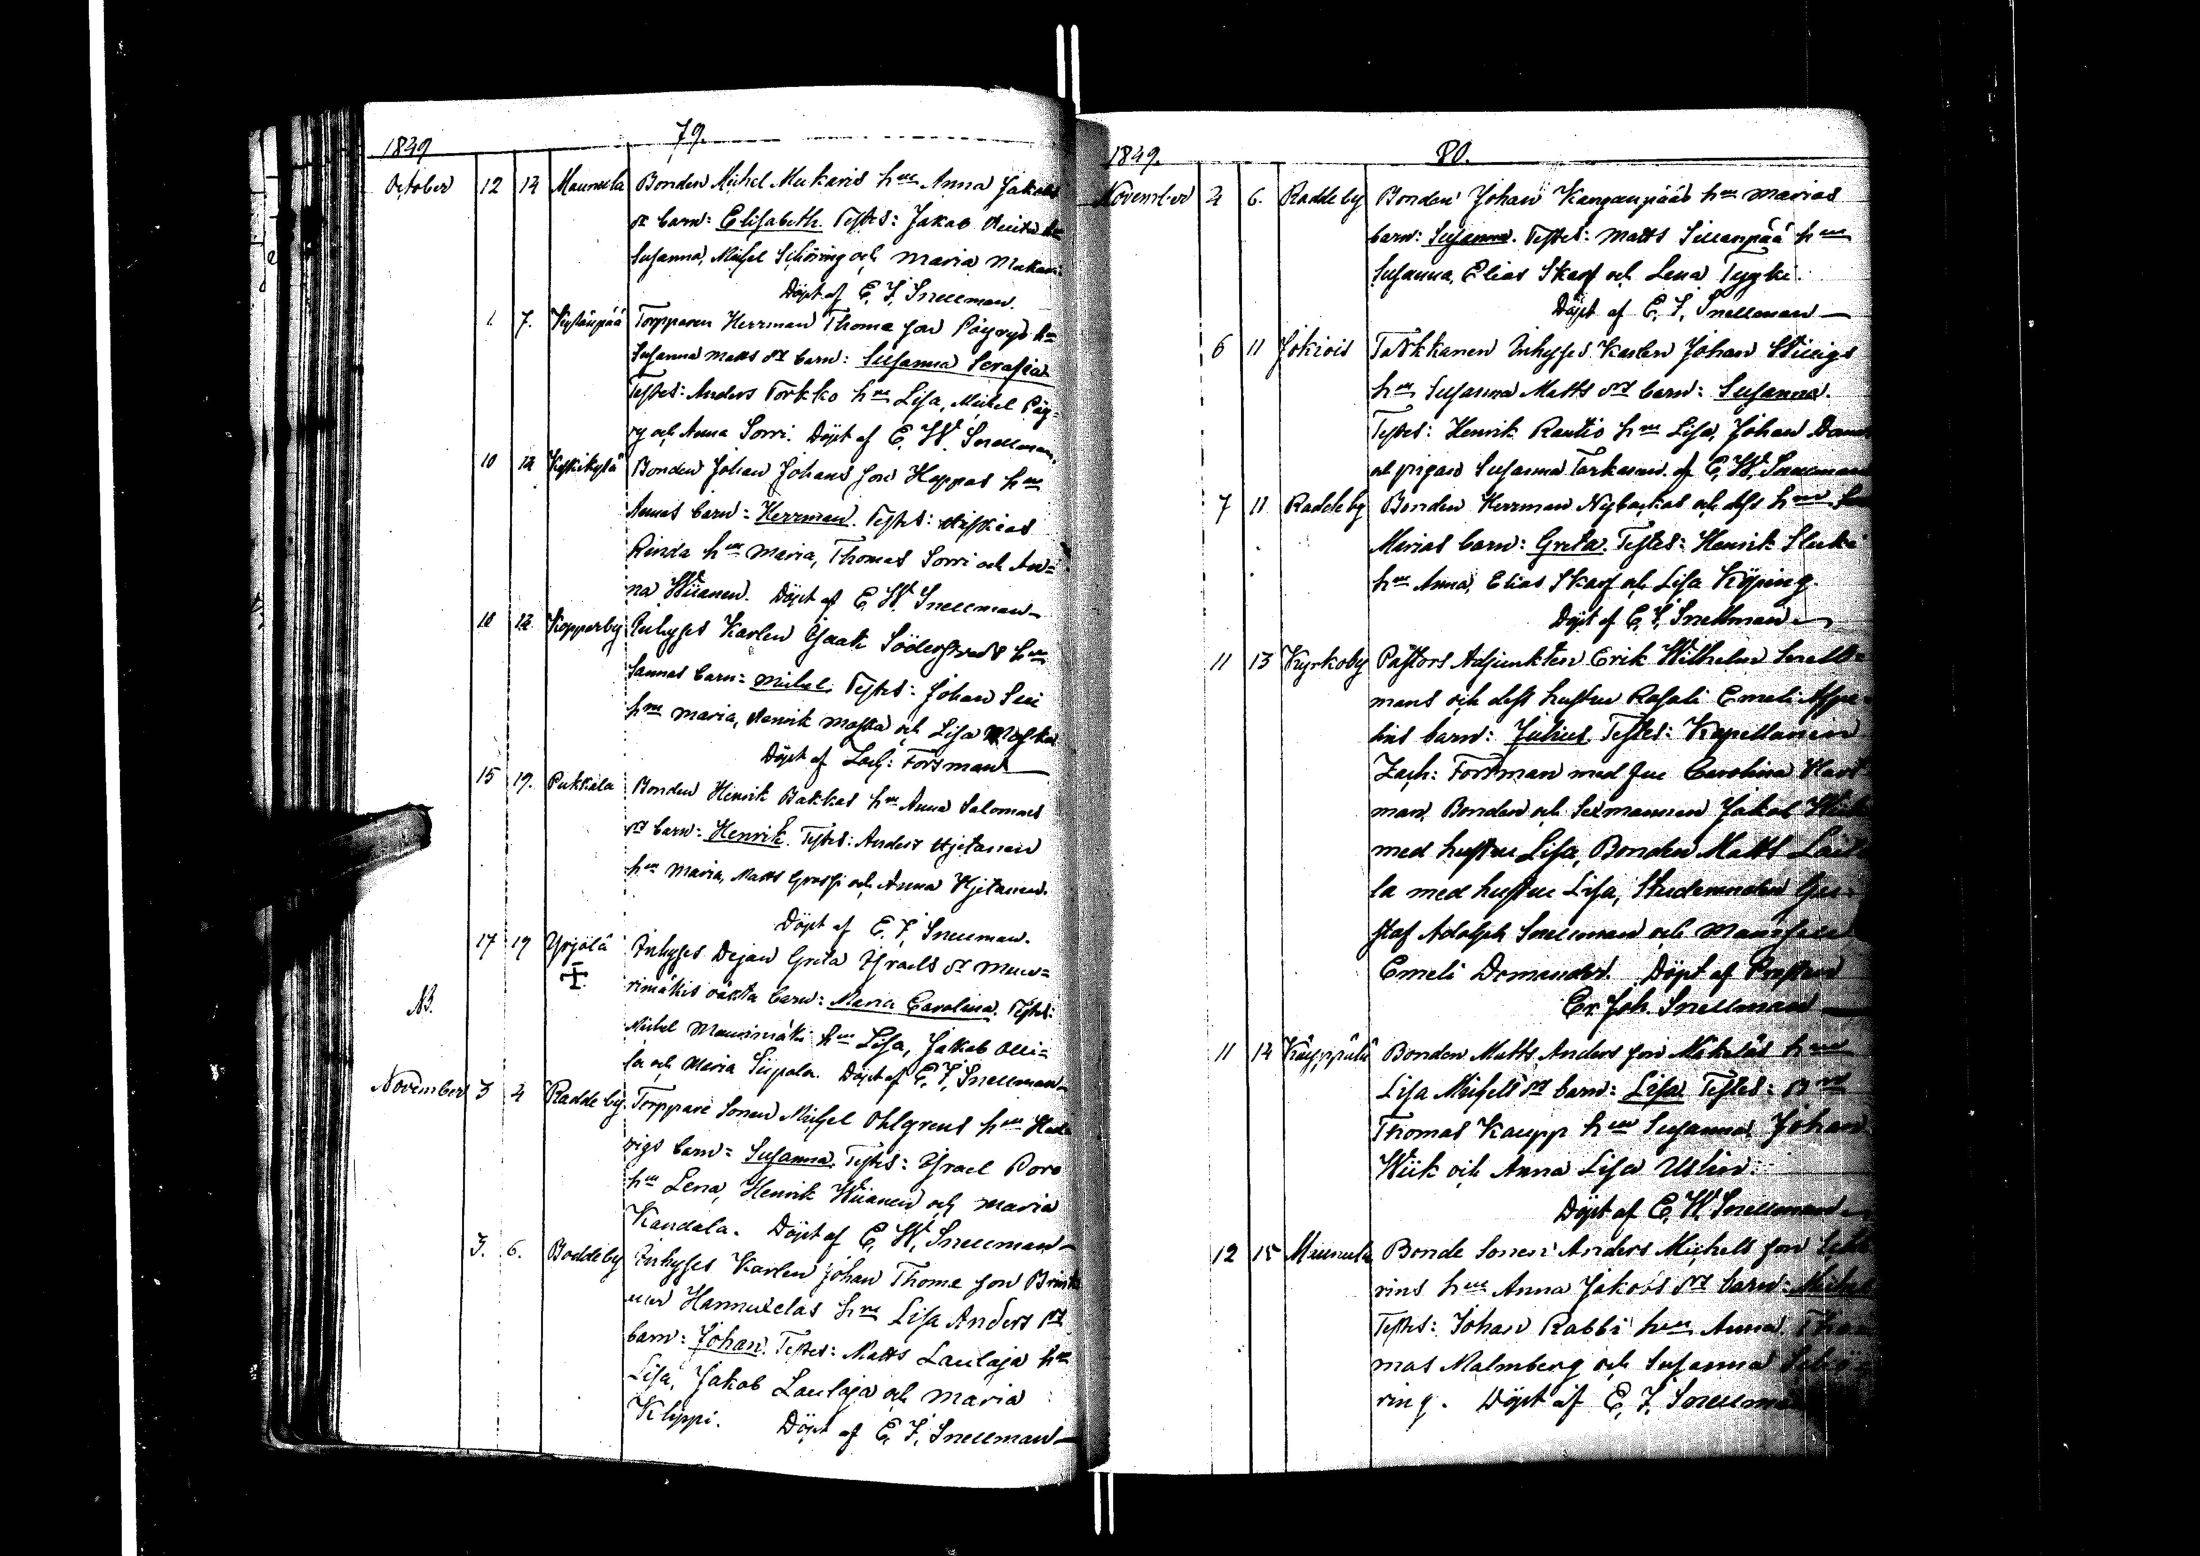 79.
1849
October 12 14 Maunula Bonden Michel Mukaris hru Anna Jakobs
dr barn: Elisabeth. Testes: Jakob
Susanna, Michel Schöring och Maria
Döpt af E. J. Snellman.
1. 7. Kylänpää Torpparen Herrman Thomæ son Pöyrys h=
Susanna Matts dr barn: Susanna Serafia
Testes: Anders Torkko hru Lisa, Michel Pöy-
ry och Anna Sorri. Döpt af E. W. Snellman.
10 14 Kylkikylä Bonden Johan Johans son Hoppas hru
Annas barn: Herrman. Testes:
Rinda hru Maria, Thomas Sorri och An=
na Wiianen. Döpt af E. W. Snellman
10 14 Kopparby Inhyses Karlen Isaak hru
Sannas barn: Michel. Testes: Johan
hru Maria, Henrik Maska och Lisa Maska
Döpt af Zach: Forsman
15 19. Pukkila Bonden Henrik Bakkas hru Anna Salomons
dr barn: Henrik. Testes: Anders
hru Maria, Matts och Anna
Döpt af E. J. Snellman.
17 19 Yrjälä Inhyses Dejan Greta Israels dr Mau=
rimäkis oäkta barn: Maria Carolina. Testes:
NB. Michel Maurimäki hru Lisa, Jakob Olli=
la och Maria Siipola. Döpt af E. J. Snellman
November 3 4 Raddeby Torppare Sonen Michel Ohlgrens hru Hed-
vigs barn: Susanna. Testes: Israel Poro
hru Lena, Henrik Wiianen och Maria
Kandela. Döpt af E. W. Snellman
3. 6. Boddeby Inhyses Karlen Johan Thomæ son
Hannuxelas hru Lisa Anders dr
barn: Johan. Testes: Matts Laulaja hru
Lisa, Jakob Laulaja och Maria
Klippi. Döpt af E. J. Snellman
80.
1849.
November 4 6. Raddeby Bonden Johan Kangaspääs hru Marias
barn: Susanna. Testes: Matts Sillanpää hru
Susanna, Elias Skarf och Lena Tyyki.
Döpt af E. J. Snellman
6 11 Jokiois Tarkkanen Inhyses Karlen Johan Willigs
hru Susanna Matts dr barn: Susanna.
Testes: Henrik Rautio hru Lisa, Johan
och pigan Susanna Tarkanen. af E. W. Snellman
7 11 Raddeby Bonden Herrman Nybackas och dess hru
Marias barn: Greta. Testes: Henrik
hru Anna, Elias Skarf och Lisa Köping.
Döpt af E. J. Snellman
11 13 Kyrkoby Pastors Adjunkten Erik Wilhelm Snell=
mans och dess hustru Rosali Emeli Aspe-
lins barn: Julius. Testes: Kapellanen
Zach: Forsman med fru Carolina
man, Bonden och Sexmannen Jakob
med hustru Lisa, Bonden Matts
la med hustru Lisa, Studeranden Gu-
staf Adolph Snellman och Mamsell
Emeli Domander. Döpt af Prosten
Er. Joh. Snellman
11 14 Käyppälä Bonden Matts Anders son Mäkeläs hru
Lisa Michels dr barn: Lisa. Testes:
Thomas Kaupp hru Susanna, Johan
Wiik och Anna Lisa
Döpt af E. W. Snellman
12 15 Maunula Bonde Sonen Anders Michels son
rins hru Anna Jakobs dr barn: Michel
Testes: Johan Rabbi hru Anna, Tho-
mas Malmberg och Susanna Schö-
ring. Döpt af E. J. Snellman